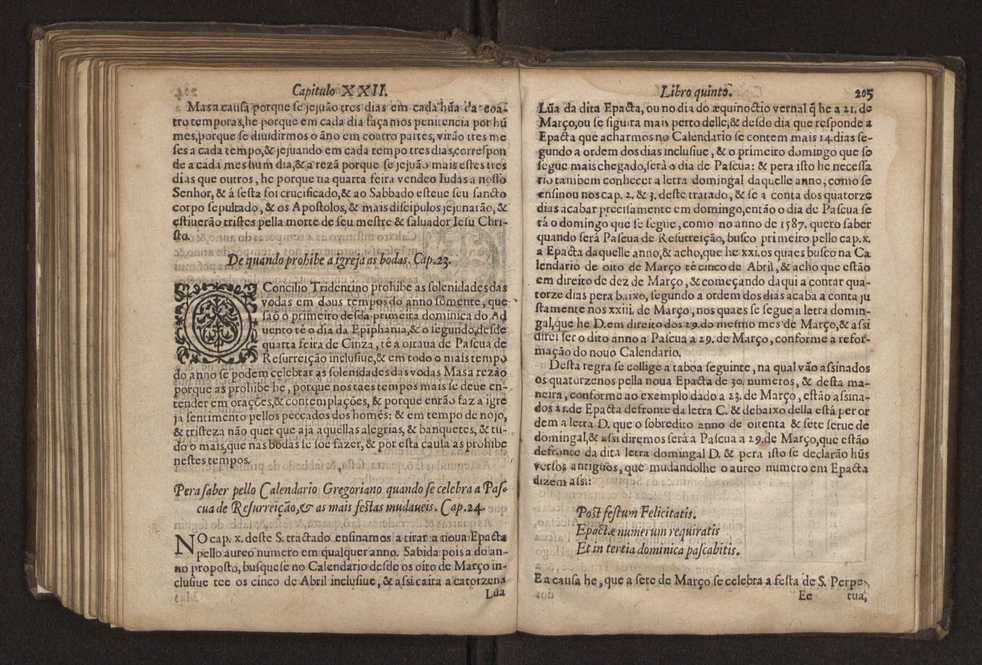 Capitulo XXII.
Mas a causa porque se jejuão tres dias em cada hũa da coa-
tro temporas, he porque em cada dia façamos penitencia por hũ
mes, porque se diuidirmos o ãno em coatro partes, virão tres me
ses a cada tempo, & jejuando em cada tempo tres dias, correspon
de a cada mes hum dia, & a rezã porque se jejuão mais estes tres
dias que outros, he porque na quarta feira vendeo Iudas a nosso
Senhor, & á sesta foi crucificado, & ao Sabbado esteue seu sancto
corpo sepultado, & os Apostolos, & mais discipulos jejunarão, &
estiuerão tristes pella morte de seu mestre & saluador Iesu Chri-
sto.
De quando prohibe a igreja as bodas. Cap. 23.
O Concilio Tridentino prohibe as solenidades das
vodas em dous tempos do anno sòmente, que
são o primeiro desda primeira dominica do Ad
uento té o dia da Epiphania, & o segundo, desde
quarta feira de Cinza, té a oitaua de Pascua de
Resurreição inclusiue, & em todo o mais tempo
do anno se podem celebrar as solenidades das vodas. Mas a rezão
porque as prohibe he, porque nos taes tempos mais se deue en-
tender em orações, & contemplações, & porque então faz a igre
ja sentimento pellos peccados dos homẽs: & em tempo de nojo,
& tristeza não quer que aja aquellas alegrias, & banquetes, & tu-
do o mais, que nas bodas se soe fazer, & por esta causa as prohibe
nestes tempos.
Pera saber pello Calendario Gregoriano quando se celebra a Pas-
cua de Resurreição, & as mais festas mudaueis. Cap. 24.
NO cap. x. deste 5. tractado ensinamos a tirar a noua Epacta
pello aureo numero em qualquer anno. Sabida pois a do an-
no proposto, busquese no Calendario desde os oito de Março in-
clusiue tee os cinco de Abril inclusiue, & assi caira a catorzena
Lũa
Libro quinto. 205
Lũa da dita Epacta, ou no dia do æquinoctio vernal q̃ he a 21. de
Março, ou se siguira mais perto delle, & desdo dia que responde a
Epacta que acharmos no Calendario se contem mais 14. dias se-
gundo a ordem dos dias inclusiue, & o primeiro domingo que se
segue mais chegado, serà o dia de Pascua: & pera isto he necessa
rio tambem conhecer a letra domingal daquelle anno, como se
ensinou nos cap. 2. & 3. deste tratado, & se a conta dos quatorze
dias acabar precisamente em domingo, então o dia de Pascua se
rá o domingo que se segue, como no anno de 1587. quero saber
quando será Pascua de Resurreição, busco primeiro pello cap. x.
a Epacta daquelle anno, & acho, que he xxi. os quaes busco na Ca
lendario de oito de Março té cinco de Abril, & acho que estão
em direito de dez de Março, & começando daqui a contar qua-
torze dias pera baixo, segundo a ordem dos dias acaba a conta ju
stamente nos xxiii. de Março, nos quaes se segue a letra domin-
gal, que he D. em direito dos 29. do mesmo mes de Março, & assi
direi ser o dito anno a Pascua a 29. de Março, conforme a refor-
mação do nouo Calendario.
Desta regra se collige a taboa seguinte, na qual vão assinados
os quatorzenos pella noua Epacta de 30. numeros, & desta ma-
neira, conforme ao exemplo dado a 23. de Março, estão assina-
dos 21. de Epacta defronte da letra C. & debaixo della está per or
dem a letra D. que o sobredito anno de oitenta & sete serue de
domingal, & assi diremos será a Pascua a 29. de Março, que estão
defronte da dita letra domingal D. & pera isto se declarão hũs
versos antiguos, que mudandolhe o aureo numero em Epacta
dizem assi:
Post festum Felicitatis.
Epactæ numerum requiratis
Et in tertia dominica pascabitis.
E a causa he, que a sete de Março se celebra a festa de S. Perpe-
Ee tua,